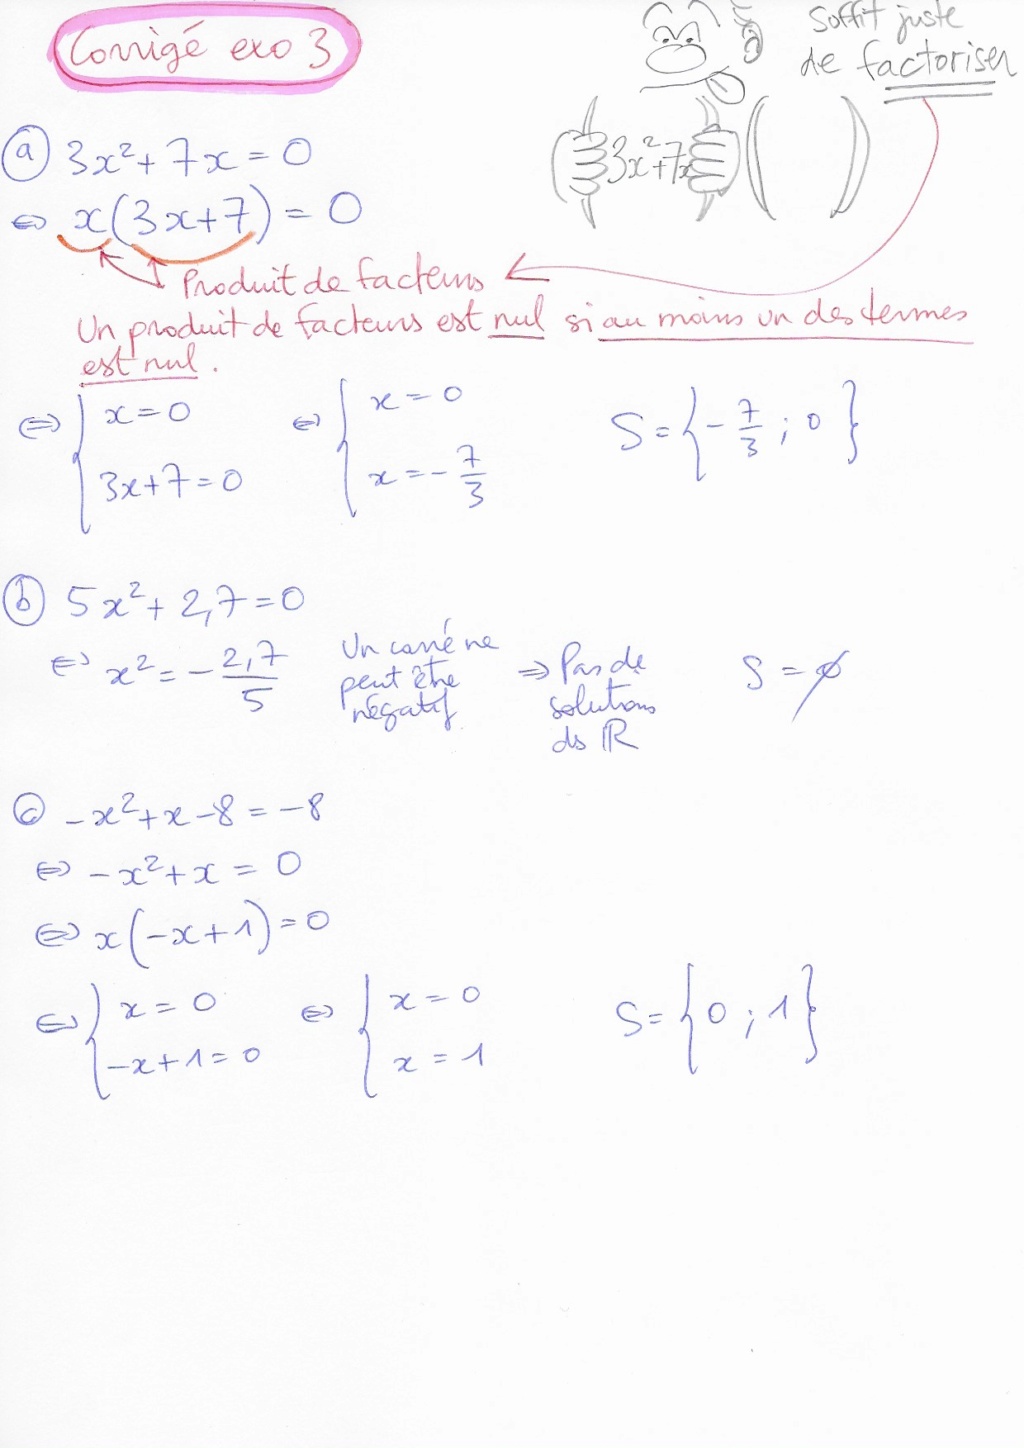 Corrigé exo 3
Soffit juste
de factoriser
3x²+7x
ⓐ 3x²+7x=0
⇔ x(3x+7)=0
Produit de facteurs
Un produit de facteurs est nul si au moins un des termes
est nul.
⇔ { x=0 ⇔ { x=0
3x+7=0 x=-7/3 S={-7/3 ; 0}
ⓑ 5x²+2,7=0
⇔ x²=-2,7/5
Un carré ne
peut être
négatif
⇒ Pas de
solutions
ds ℝ
S=∅
ⓒ -x²+x-8=-8
⇔ -x²+x=0
⇔ x(-x+1)=0
⇔ { x=0 ⇔ { x=0
-x+1=0 x=1 S={0 ; 1}